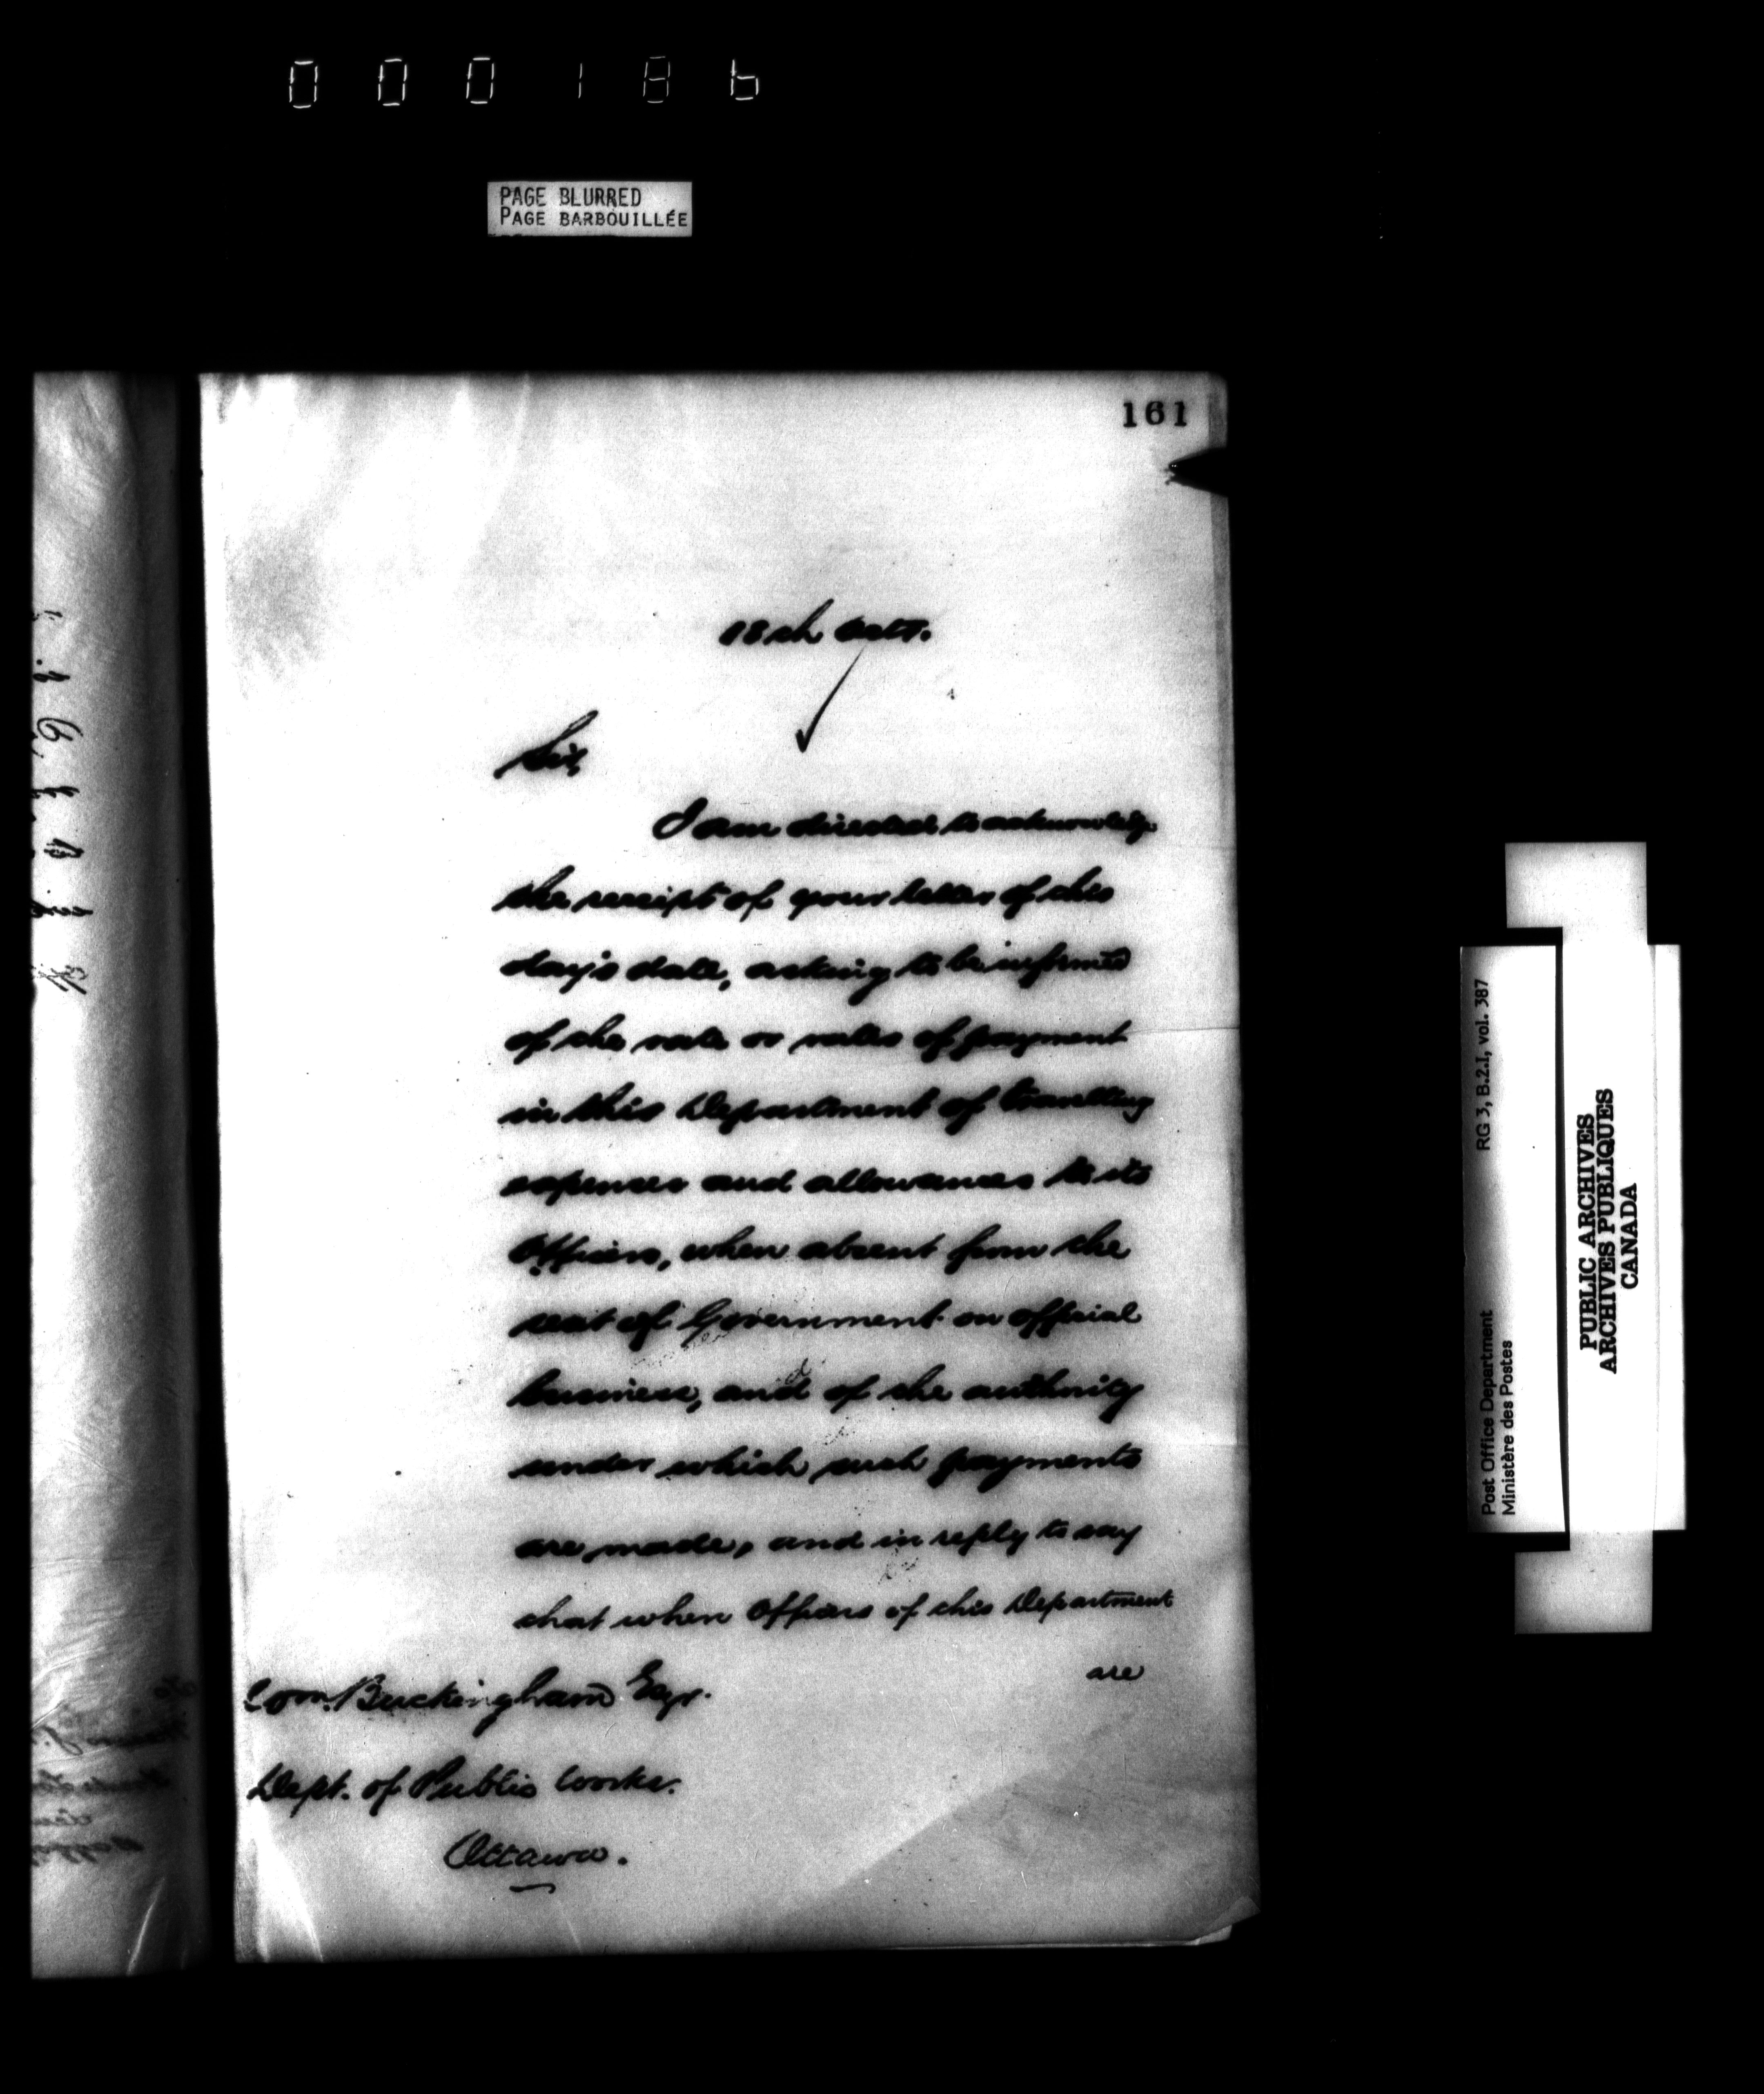 000186
PAGE BLURRED
PAGE BARBOUILLÉE
161
18th Octr.
Sir,
I am directed to acknowledge
the receipt of your letter of this
day's date, asking to be informed
of the rate or rates of payment
in this Department of travelling
expenses and allowances to its
Officers, when absent from the
seat of Government on official
business, and of the authority
under which such payments
are made, and in reply to say
that when Officers of this Department
are
Wm. Buckingham Esqr.
Dept. of Public Works.
Ottawa.
Post Office Department RG 3, B.2.I, vol. 387
Ministère des Postes
PUBLIC ARCHIVES
ARCHIVES PUBLIQUES
CANADA